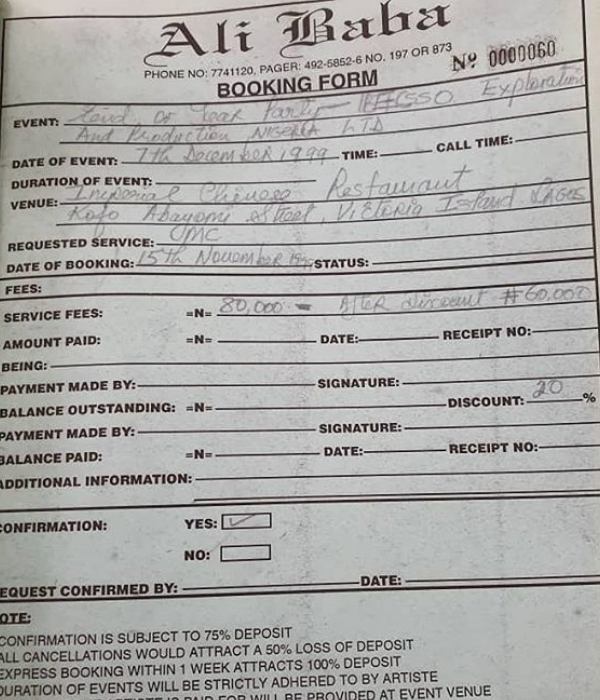 Ali Baba
PHONE NO: 7741120, PAGER: 492-5852-6 NO. 197 OR 873
Nº 0000060
BOOKING FORM
EVENT: End of Year Party - Exploration
And Production NIGERIA LTD
DATE OF EVENT: 7th December 1999 TIME: CALL TIME:
DURATION OF EVENT:
VENUE: Imperial Chinese Restaurant
Kofo Abayomi Street, Victoria Island, LAGOS
REQUESTED SERVICE: CMC
DATE OF BOOKING: 15th November STATUS:
FEES:
SERVICE FEES: =N= 80,000 - After discount #60,000
AMOUNT PAID: =N= DATE: RECEIPT NO:
BEING:
PAYMENT MADE BY: SIGNATURE:
BALANCE OUTSTANDING: =N= DISCOUNT: 20 %
PAYMENT MADE BY: SIGNATURE:
BALANCE PAID: =N= DATE: RECEIPT NO:
ADDITIONAL INFORMATION:
CONFIRMATION: YES: ✓
NO:
EQUEST CONFIRMED BY: DATE:
OTE:
CONFIRMATION IS SUBJECT TO 75% DEPOSIT
ALL CANCELLATIONS WOULD ATTRACT A 50% LOSS OF DEPOSIT
EXPRESS BOOKING WITHIN 1 WEEK ATTRACTS 100% DEPOSIT
DURATION OF EVENTS WILL BE STRICTLY ADHERED TO BY ARTISTE
IS PAID FOR WILL BE PROVIDED AT EVENT VENUE